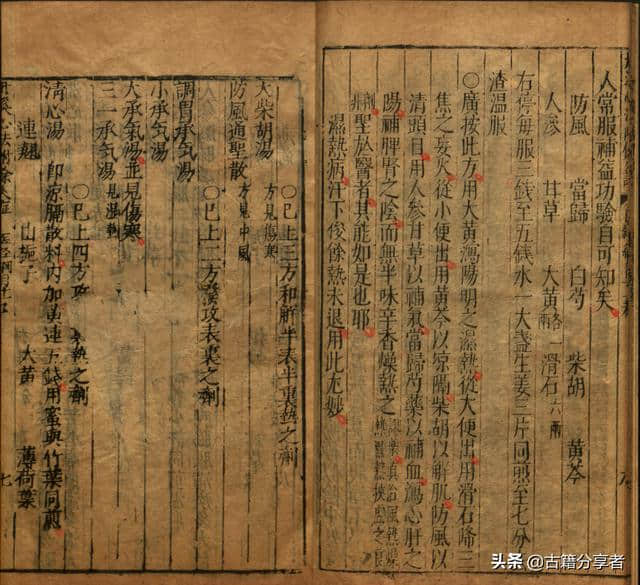 人常服補益功驗自可知矣
防風　當歸　白芍　柴胡　黄芩
人參　甘草　大黄各一兩　滑石六兩
右㕮每服三錢至五錢水一大盞生姜三片同煎至七分
渣温服
〇廣按此方用大黄瀉陽明之濕熱從大便出用滑石降三
焦之妄火從小便出用黄芩以凉膈柴胡以解肌防風以
清頭目用人參甘草以補氣當歸芍藥以補血瀉心肝之
陽補脾腎之陰而無半味辛香燥熱之
劑聖於醫者其能如是也耶
濕熱病汗下後餘熱未退用此尤妙
大柴胡湯　方見傷寒
〇已上三方和解半表半裏熱之劑
防風通聖散　方見中風
〇已上二方發攻表裏之劑
調胃承氣湯
小承氣湯
大承氣湯並見傷寒
三一承氣湯
〇已上四方攻　熱之劑
清心湯　即凉膈散料内加黄連五錢用蜜與竹葉同煎
連翹　山梔子　大黄　薄荷葉
七
头条 @古籍分享者